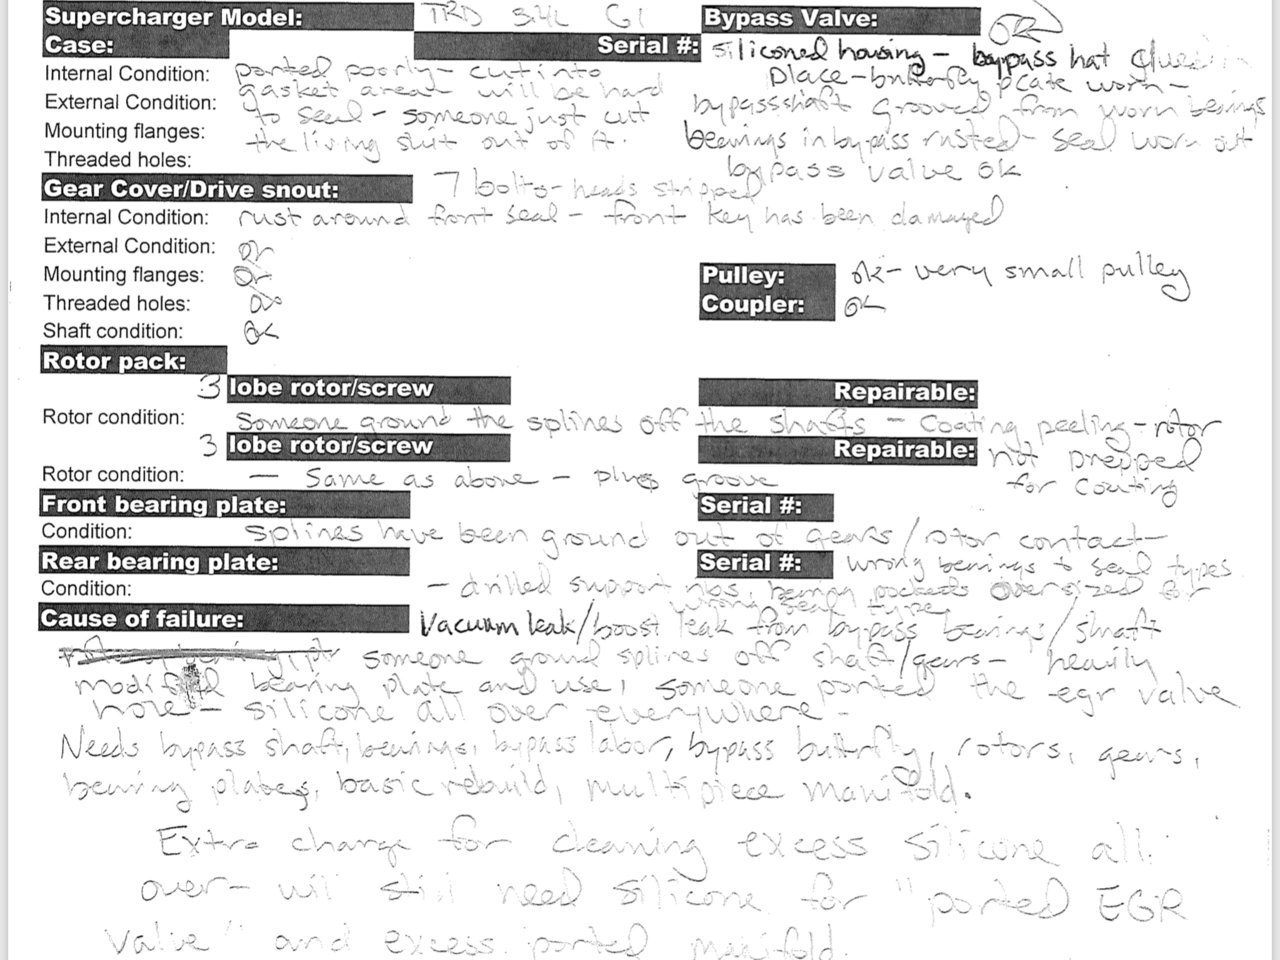 Supercharger Model: TRD 3.4L G1
Bypass Valve: OK
Case:
Serial #:
siliconed housing - bypass hat glued in
place - butterfly plate worn -
bypass shaft grooved from worn beaings
beearings in bypass rusted - seal worn out
bypass valve ok
Internal Condition: ported poorly - cut into
External Condition: gasket area - will be hard
to seal - someone just cut
Mounting flanges: the living shit out of it.
Threaded holes:
Gear Cover/Drive snout: 7 bolts - heads stripped
Internal Condition: rust around front seal - front key has been damaged
External Condition: ok
Mounting flanges: ok
Threaded holes: ok
Shaft condition: ok
Pulley: ok - very small pulley
Coupler: ok
Rotor pack:
3 lobe rotor/screw
Repairable:
Rotor condition: Someone ground the splines off the shafts - coating peeling - rotor
not prepped
for coating
3 lobe rotor/screw
Repairable:
Rotor condition: - Same as above - plus groove
Front bearing plate:
Serial #:
Condition: splines have been ground out of gears/rotor contact -
Rear bearing plate:
Serial #: wrong bearings to seal types
Condition: - drilled support ribs, bearing pockets oversized for
wrong seal type
Cause of failure: Vacuum leak/boost leak from bypass bearings/shaft
someone ground splines off shaft/gears - heavily
modified bearing plate and use, someone ported the egr valve
hole - silicone all over everywhere -
Needs bypass shaft, bearings, bypass labor, bypass butterfly, rotors, gears,
bearing plates, basic rebuild, multi piece manifold.
Extra charge for cleaning excess silicone all
over - will still need silicone for "ported EGR
valve" and excess ported manifold.